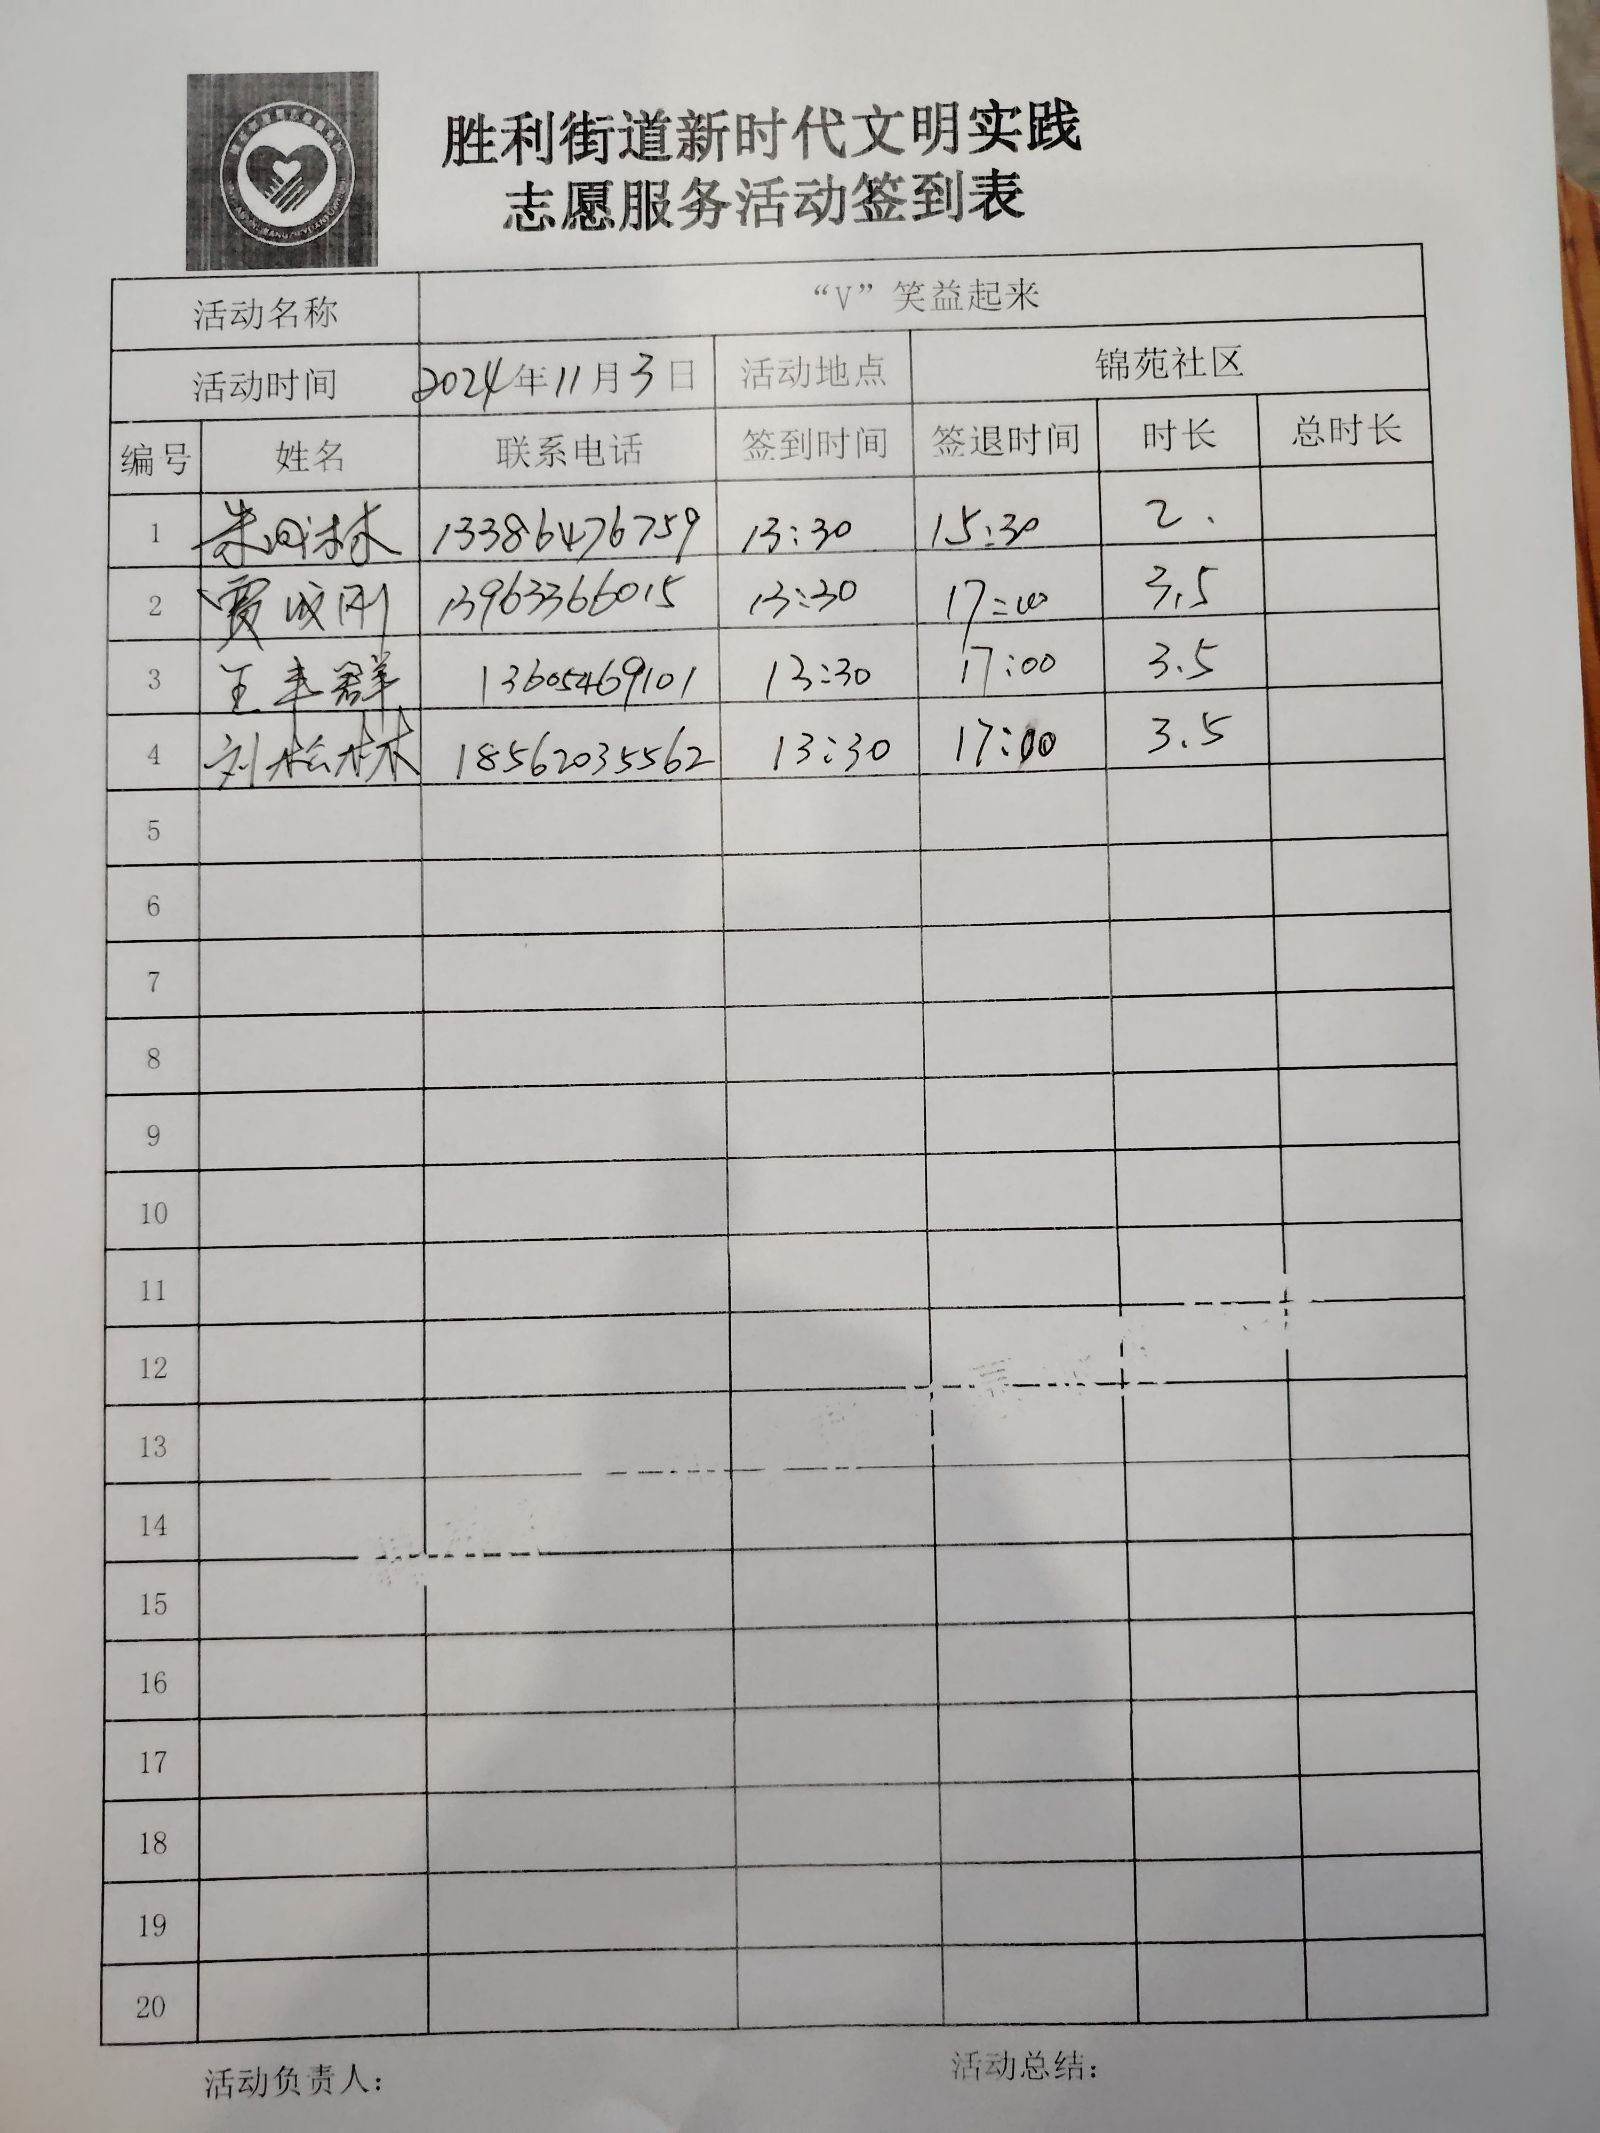 胜利街道新时代文明实践
志愿服务活动签到表
活动名称 “V”笑益起来
活动时间 2024年11月3日 活动地点 锦苑社区
编号 姓名 联系电话 签到时间 签退时间 时长 总时长
1 13386476759 13:30 15:30 2.
2 贾成刚 13963366015 13:30 17:00 3.5
3 王丰群 13605469101 13:30 17:00 3.5
4 刘松林 18562035562 13:30 17:00 3.5
5
6
7
8
9
10
11
12
13
14
15
16
17
18
19
20
活动负责人: 活动总结: